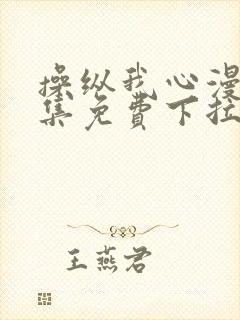 操纵我心漫
集免费下拉
王燕君